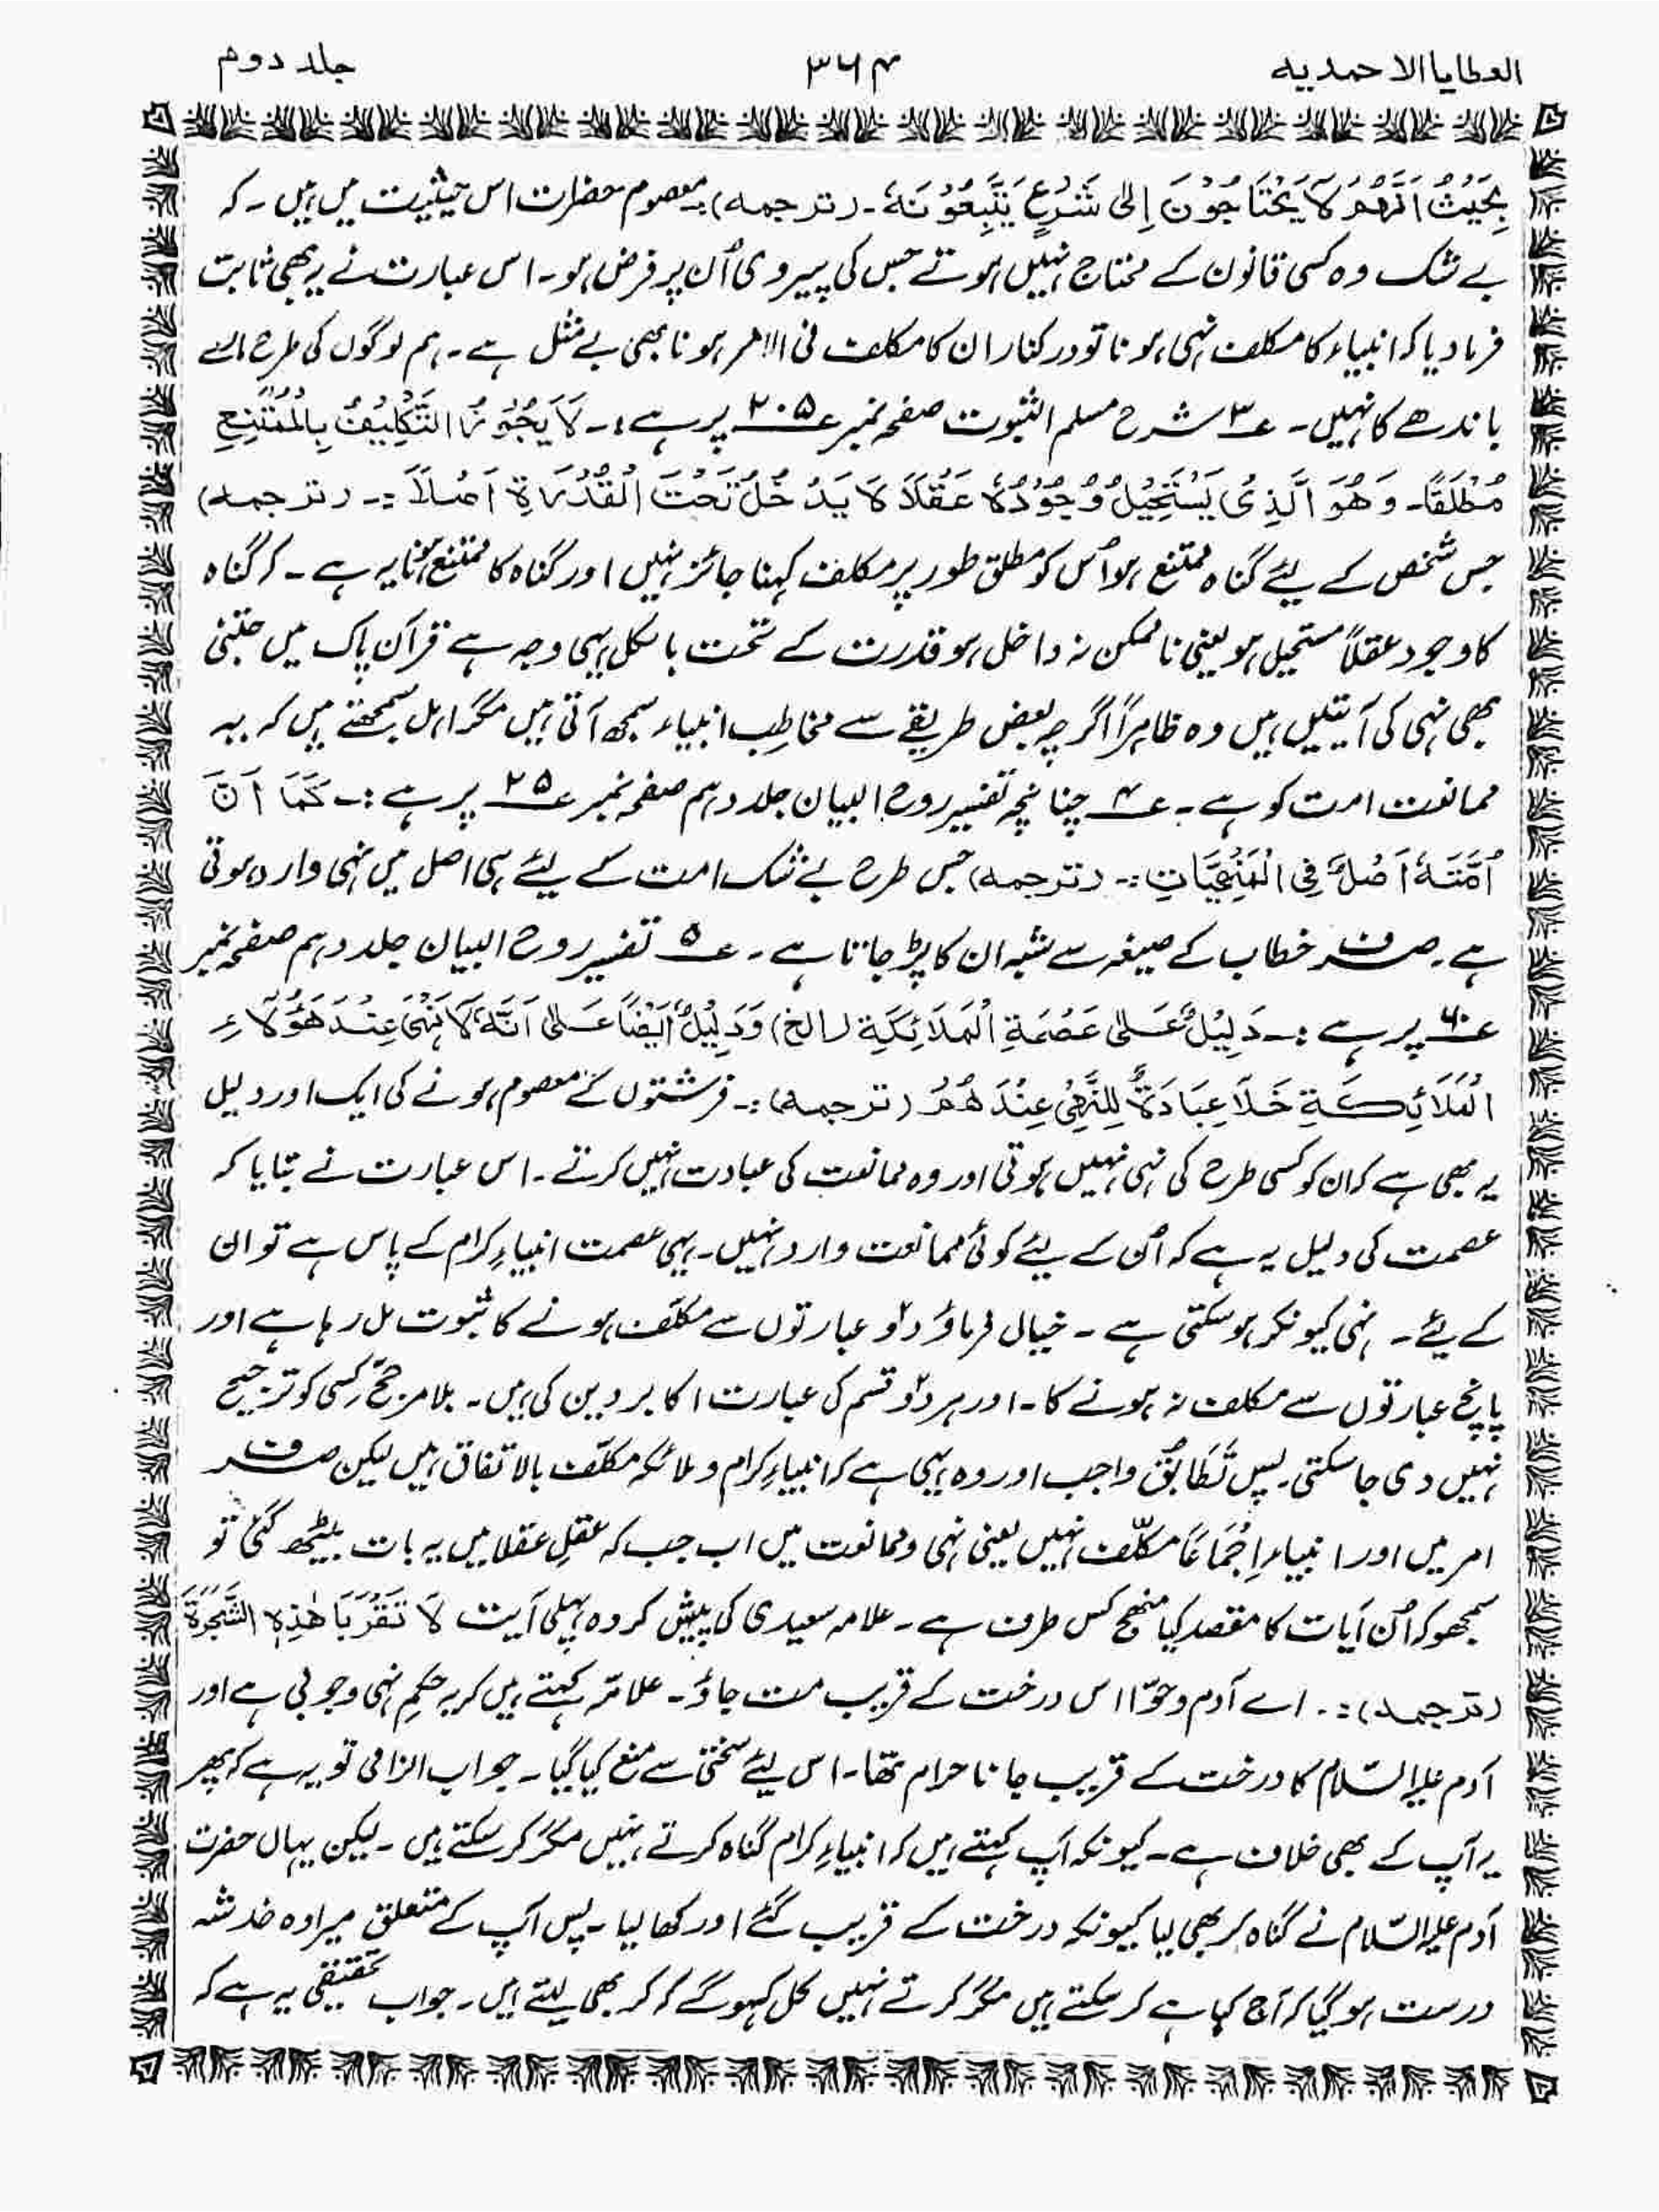 العطایا الاحمدیہ ۳۶۴ جلد دوم
بِحَیْثُ اَنَّھُمْ لَا یَحْتَاجُوْنَ اِلیٰ شَرْعٍ یَتَّبِعُوْنَہٗ۔ (ترجمہ)۔ معصوم حضرات اس حیثیت میں ہیں۔ کہ
بے شک وہ کسی قانون کے محتاج نہیں ہوتے جس کی پیروی اُن پر فرض ہو۔ اس عبارت نے یہ بھی ثابت
فرما دیا کہ انبیاء کا مکلف نہی ہونا تو درکنار ان کا مکلف فی الامر ہونا بھی بے مثل ہے۔ ہم لوگوں کی طرح ایسے
باندھے کا نہیں۔ ع۳ شرح مسلم الثبوت صفحہ نمبر ع۲۰۵ پر ہے:۔ لَا یَجُوْزُ التَّکْلِیْفُ بِالْمُمْتَنِعِ
مُطْلَقًا۔ وَ ھُوَ الَّذِیْ یَسْتَحِیْلُ وُجُوْدُہٗ عَقْلًا لَا یَدْخُلُ تَحْتَ الْقُدْرَۃِ اَصْلًا :۔ (ترجمہ)
جس شخص کے لیئے گناہ ممتنع ہو اُس کو مطلق طور پر مکلف کہنا جائز نہیں اور گناہ کا ممتنع ہونا یہ ہے۔ کہ گناہ
کا وجود عقلاً مستحیل ہو یعنی ناممکن نہ داخل ہو قدرت کے تحت بالکل یہی وجہ ہے قرآن پاک میں جتنی
بھی نہی کی آیتیں ہیں وہ ظاہراً اگرچہ بعض طریقے سے مخاطِب انبیاء سمجھ آتی ہیں مگر اہل سمجھتے ہیں کہ یہ
ممانعت امت کو ہے۔ ع۴ چنانچہ تفسیر روح البیان جلد دہم صفحہ نمبر ع۲۵ پر ہے:۔ کَمَا اَنَّ
اُمَّتَہٗ اَصْلٌ فِی الْمَنْھِیَّاتِ :۔ (ترجمہ) جس طرح بے شک امت کے لیئے ہی اصل میں نہی وارد ہوتی
ہے۔ صرف خطاب کے صیغہ سے شبہ ان کا پڑ جاتا ہے۔ ع۵ تفسیر روح البیان جلد دہم صفحہ نمبر
ع۶۰ پر ہے :۔ دَلِیْلٌ عَلیٰ عَصْمَۃِ الْمَلَائِکَۃِ (الخ) وَدَلِیْلٌ اَیْضًا عَلیٰ اَنَّہٗ لَا نَہْیَ عِنْدَ ھَؤُلَاءِ
الْمَلَائِکَۃِ خَلَا عِبَادَۃٌ لِلنَّھْیِ عِنْدَ ھُمْ (ترجمہ) :۔ فرشتوں کے معصوم ہونے کی ایک اور دلیل
یہ بھی ہے کہ ان کو کسی طرح کی نہی نہیں ہوتی اور وہ ممانعت کی عبادت نہیں کرتے۔ اس عبارت نے بتایا کہ
عصمت کی دلیل یہ ہے کہ اُن کے لیئے کوئی ممانعت وارد نہیں۔ یہی عصمت انبیاءِ کرام کے پاس ہے تو ان
کے لیئے۔ نہی کیونکر ہو سکتی ہے۔ خیال فرماؤ دو عبارتوں سے مکلّف ہونے کا ثبوت مل رہا ہے اور
پانچ عبارتوں سے مکلف نہ ہونے کا۔ اور ہر دو قسم کی عبارت اکابر دین کی ہیں۔ بلا مرجّح کِسی کو ترجیح
نہیں دی جا سکتی۔ پس تَطَابُق واجب اور وہ یہی ہے کہ انبیاءِ کرام و ملائکہ مکلّف بالاتفاق ہیں لیکن صرف
امر میں اور انبیاء اِجْمَاعًا مکلّف نہیں یعنی نہی و ممانعت میں اب جب کہ عقلِ عقلا میں یہ بات بیٹھ گئی تو
سمجھو کہ اُن آیات کا مقصد کیا منھج کس طرف ہے۔ علامہ سعیدی کی پیش کردہ پہلی آیت لَا تَقْرَبَا ھٰذِہِ الشَّجَرَۃَ
(ترجمہ) :۔ اے آدم و حوّا اس درخت کے قریب مت جاؤ۔ علامہ کہتے ہیں کہ یہ حکمِ نہی وجوبی ہے اور
آدم علیہ السّلام کا درخت کے قریب جانا حرام تھا۔ اس لیئے سختی سے منع کیا گیا۔ جواب الزامی تو یہ ہے کہ پھر
یہ آپ کے بھی خلاف ہے۔ کیونکہ آپ کہتے ہیں کہ انبیاءِ کرام گناہ کرتے نہیں مگر کر سکتے ہیں۔ لیکن یہاں حضرت
آدم علیہ السّلام نے گناہ کر بھی لیا کیونکہ درخت کے قریب گئے اور کھا لیا۔ پس آپ کے متعلق میرا وہ خدشہ
درست ہو گیا کہ آج کہا ہے کر سکتے ہیں مگر کرتے نہیں کل کہو گے کہ کر بھی لیتے ہیں۔ جواب تحقیقی یہ ہے کہ